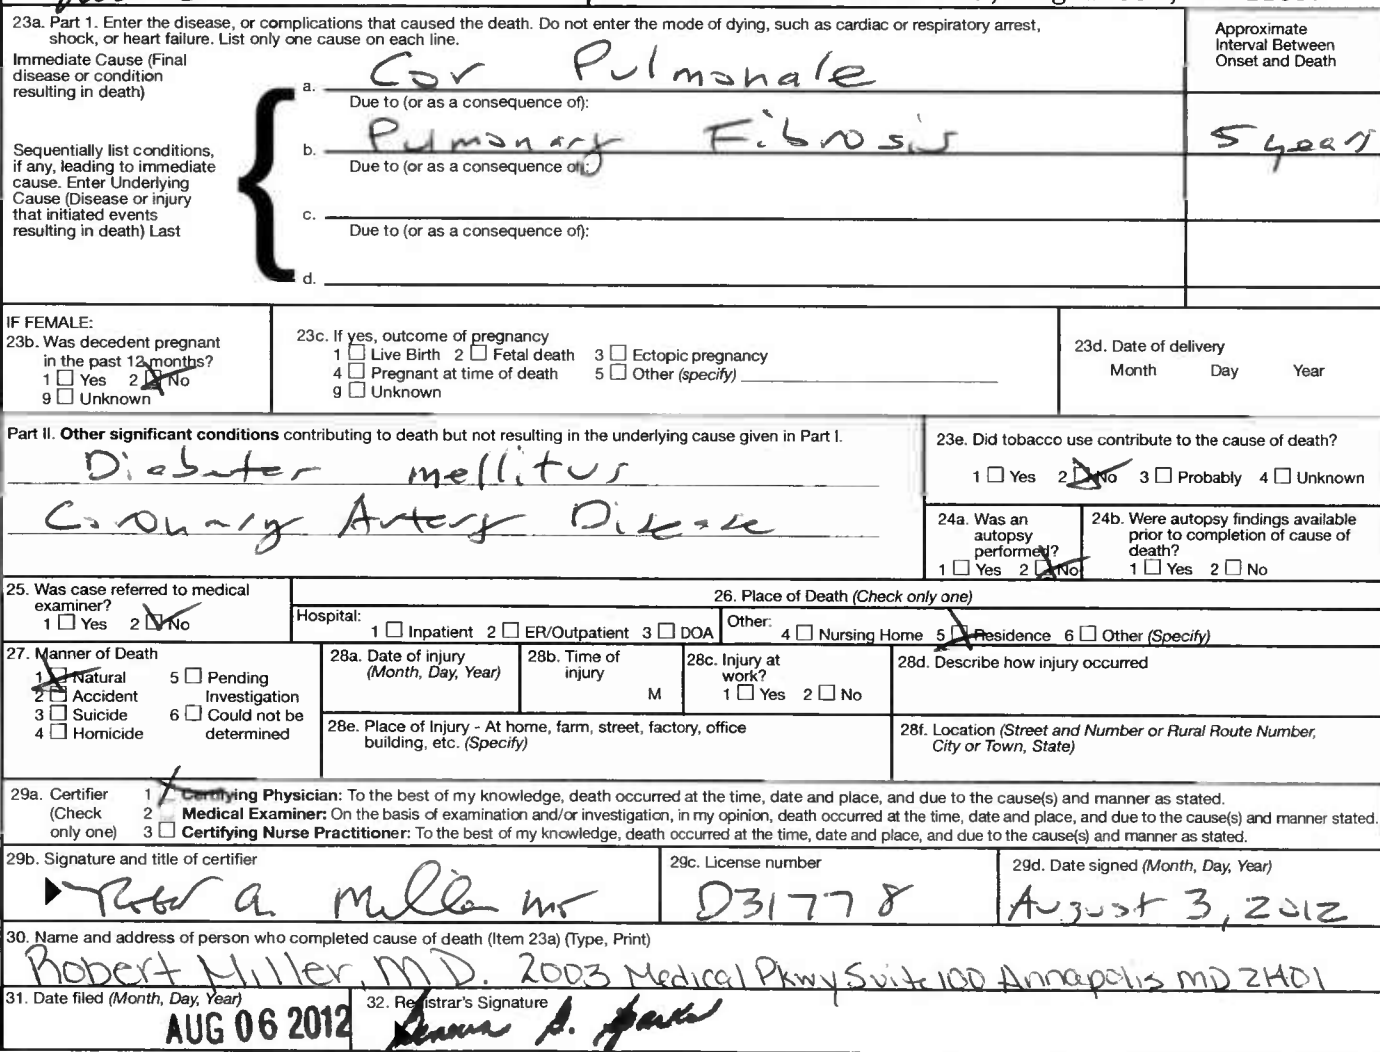 23a. Part 1. Enter the disease, or complications that caused the death. Do not enter the mode of dying, such as cardiac or respiratory arrest,
shock, or heart failure. List only one cause on each line.
Approximate
Interval Between
Onset and Death
Immediate Cause (Final
disease or condition
resulting in death)
a. Cor Pulmonale
Due to (or as a consequence of):
Sequentially list conditions,
if any, leading to immediate
cause. Enter Underlying
Cause (Disease or injury
that initiated events
resulting in death) Last
b. Pulmonary Fibrosis 5 years
Due to (or as a consequence of):
c.
Due to (or as a consequence of):
d.
IF FEMALE:
23b. Was decedent pregnant
in the past 12 months?
1 ☐ Yes 2 ☒ No
9 ☐ Unknown
23c. If yes, outcome of pregnancy
1 ☐ Live Birth 2 ☐ Fetal death 3 ☐ Ectopic pregnancy
4 ☐ Pregnant at time of death 5 ☐ Other (specify)
9 ☐ Unknown
23d. Date of delivery
Month Day Year
Part II. Other significant conditions contributing to death but not resulting in the underlying cause given in Part I.
Diabetes mellitus
Coronary Artery Disease
23e. Did tobacco use contribute to the cause of death?
1 ☐ Yes 2 ☒ No 3 ☐ Probably 4 ☐ Unknown
24a. Was an
autopsy
performed?
1 ☐ Yes 2 ☒ No
24b. Were autopsy findings available
prior to completion of cause of
death?
1 ☐ Yes 2 ☐ No
25. Was case referred to medical
examiner?
1 ☐ Yes 2 ☒ No
26. Place of Death (Check only one)
Hospital: 1 ☐ Inpatient 2 ☐ ER/Outpatient 3 ☐ DOA Other: 4 ☐ Nursing Home 5 ☒ Residence 6 ☐ Other (Specify)
27. Manner of Death
1 ☒ Natural 5 ☐ Pending
2 ☐ Accident Investigation
3 ☐ Suicide 6 ☐ Could not be
4 ☐ Homicide determined
28a. Date of injury
(Month, Day, Year)
28b. Time of
injury
M
28c. Injury at
work?
1 ☐ Yes 2 ☐ No
28d. Describe how injury occurred
28e. Place of Injury - At home, farm, street, factory, office
building, etc. (Specify)
28f. Location (Street and Number or Rural Route Number,
City or Town, State)
29a. Certifier
(Check
only one)
1 ☒ Certifying Physician: To the best of my knowledge, death occurred at the time, date and place, and due to the cause(s) and manner as stated.
2 ☐ Medical Examiner: On the basis of examination and/or investigation, in my opinion, death occurred at the time, date and place, and due to the cause(s) and manner stated.
3 ☐ Certifying Nurse Practitioner: To the best of my knowledge, death occurred at the time, date and place, and due to the cause(s) and manner as stated.
29b. Signature and title of certifier
Robert A. Miller MD
29c. License number
D31778
29d. Date signed (Month, Day, Year)
August 3, 2012
30. Name and address of person who completed cause of death (Item 23a) (Type, Print)
Robert Miller, M.D. 2003 Medical Pkwy Suite 100 Annapolis MD 21401
31. Date filed (Month, Day, Year)
AUG 06 2012
32. Registrar's Signature